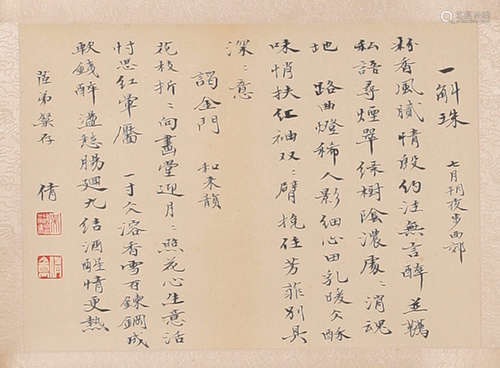 一斛珠
七月朔夜步西郊
粉香風膩情般約注無言醉並鞿
私語尋煙翠綠樹陰濃處〻消魂
地 路曲燈稀人影細心田乳暖久酥
味悄扶紅袖双〻臂挽住芳菲別具
深〻意
謁金門 和禾韻
花枝折〻向畫堂迎月〻照花心生意活
忖思紅暈靨 一寸久溶香雪百鍊鋼成
軟錢醉盪愁腸廻九結酒醒情更熱
弟粲存
倩